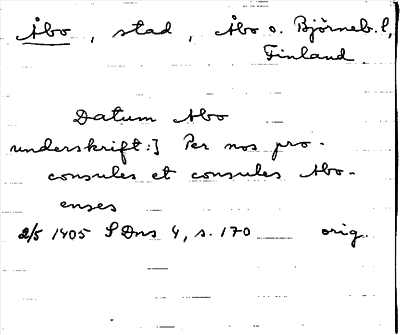 Åbo, stad, Åbo o. Björneb. l,
Finland
Datum Abo
underskrift:] Per nos pro-
consules et consules Abo-
enses
2/5 1405 SDns 4, s. 170 orig.